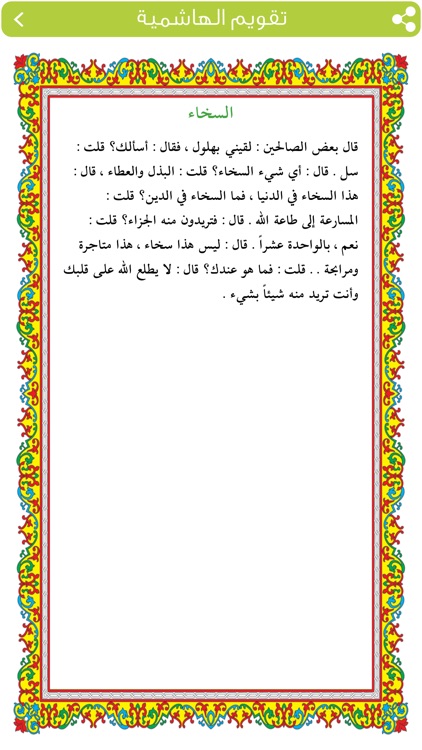 تقويم الهاشمية
السخاء
قال بعض الصالحين : لقيني بهلول ، فقال : أسألك؟ قلت :
سل . قال : أي شيء السخاء؟ قلت : البذل والعطاء ، قال :
هذا السخاء في الدنيا ، فما السخاء في الدين؟ قلت :
المسارعة إلى طاعة الله . قال : فتريدون منه الجزاء؟ قلت :
نعم ، بالواحدة عشراً . قال : ليس هذا سخاء ، هذا متاجرة
ومرابحة . . قلت : فما هو عندك؟ قال : لا يطلع الله على قلبك
وأنت تريد منه شيئاً بشيء .